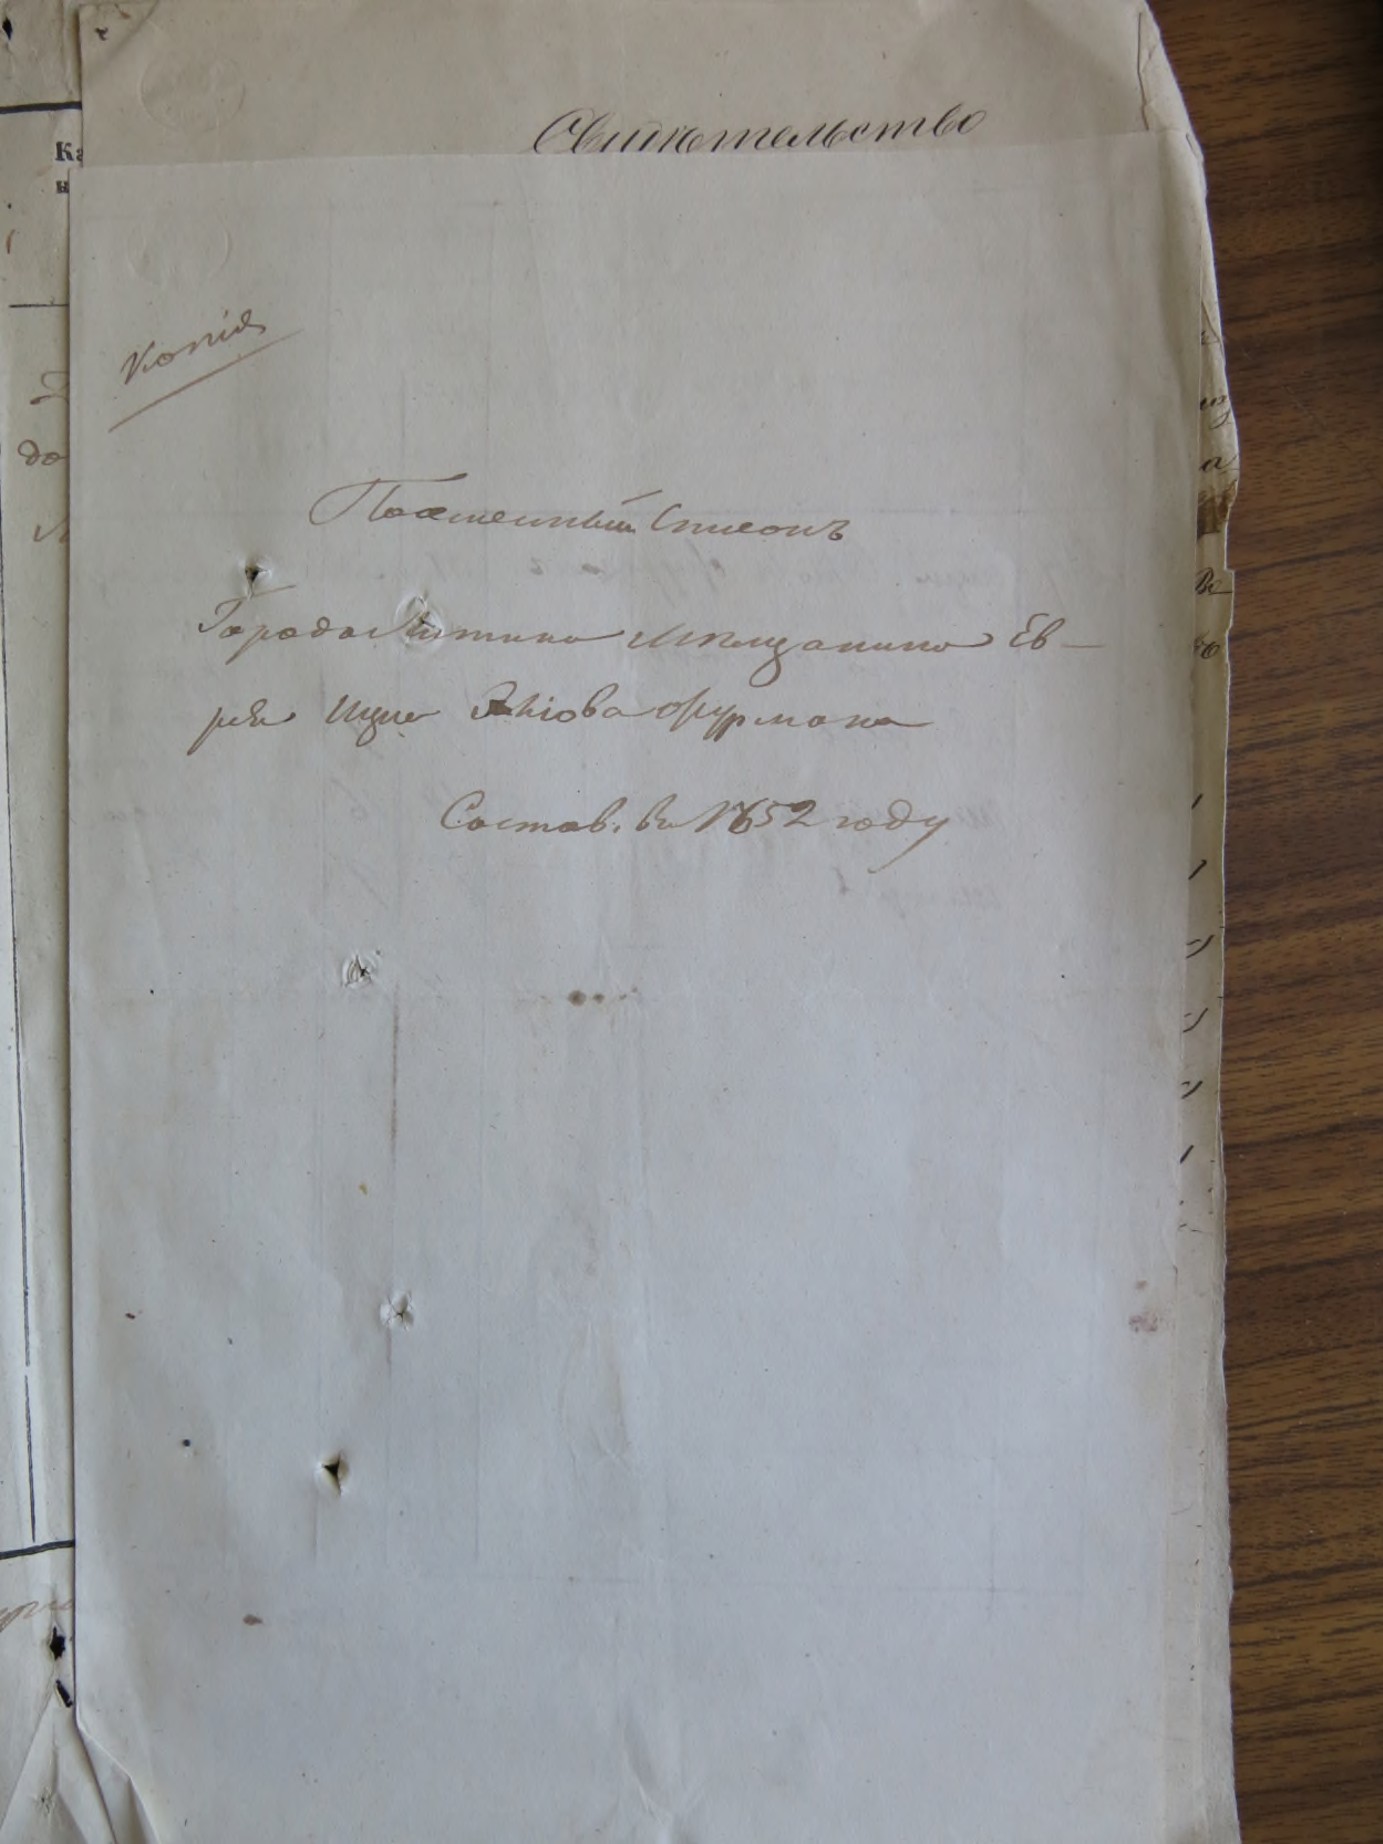 Свидѣтельство
Копія
Посемейный Списокъ
Города Литина Мѣщанина Ев-
рея Ицка Фурмана
Состав. въ 1852 году
Ка
до